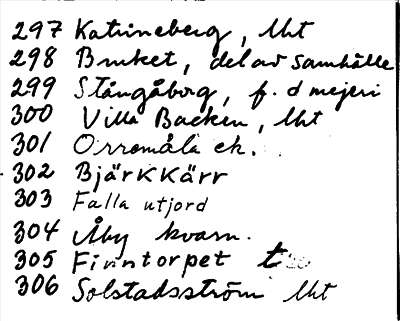 297 Katrineberg, lht
298 Bruket, del av samhälle
299 Stångåborg, f. d mejeri
300 Villa Backen, lht
301 Orromåla ek.
302 Björkkärr
303 Falla utjord
304 Åby kvarn.
305 Finntorpet t
306 Solstadsström lht